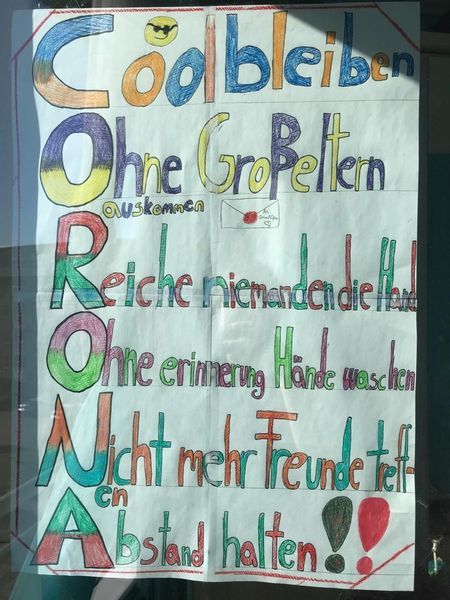 Coolbleiben
Ohne Großeltern
auskommen
Reiche niemanden die Hand
Ohne erinnerung Hände waschen
Nicht mehr Freunde treff-
en
Abstand halten !!